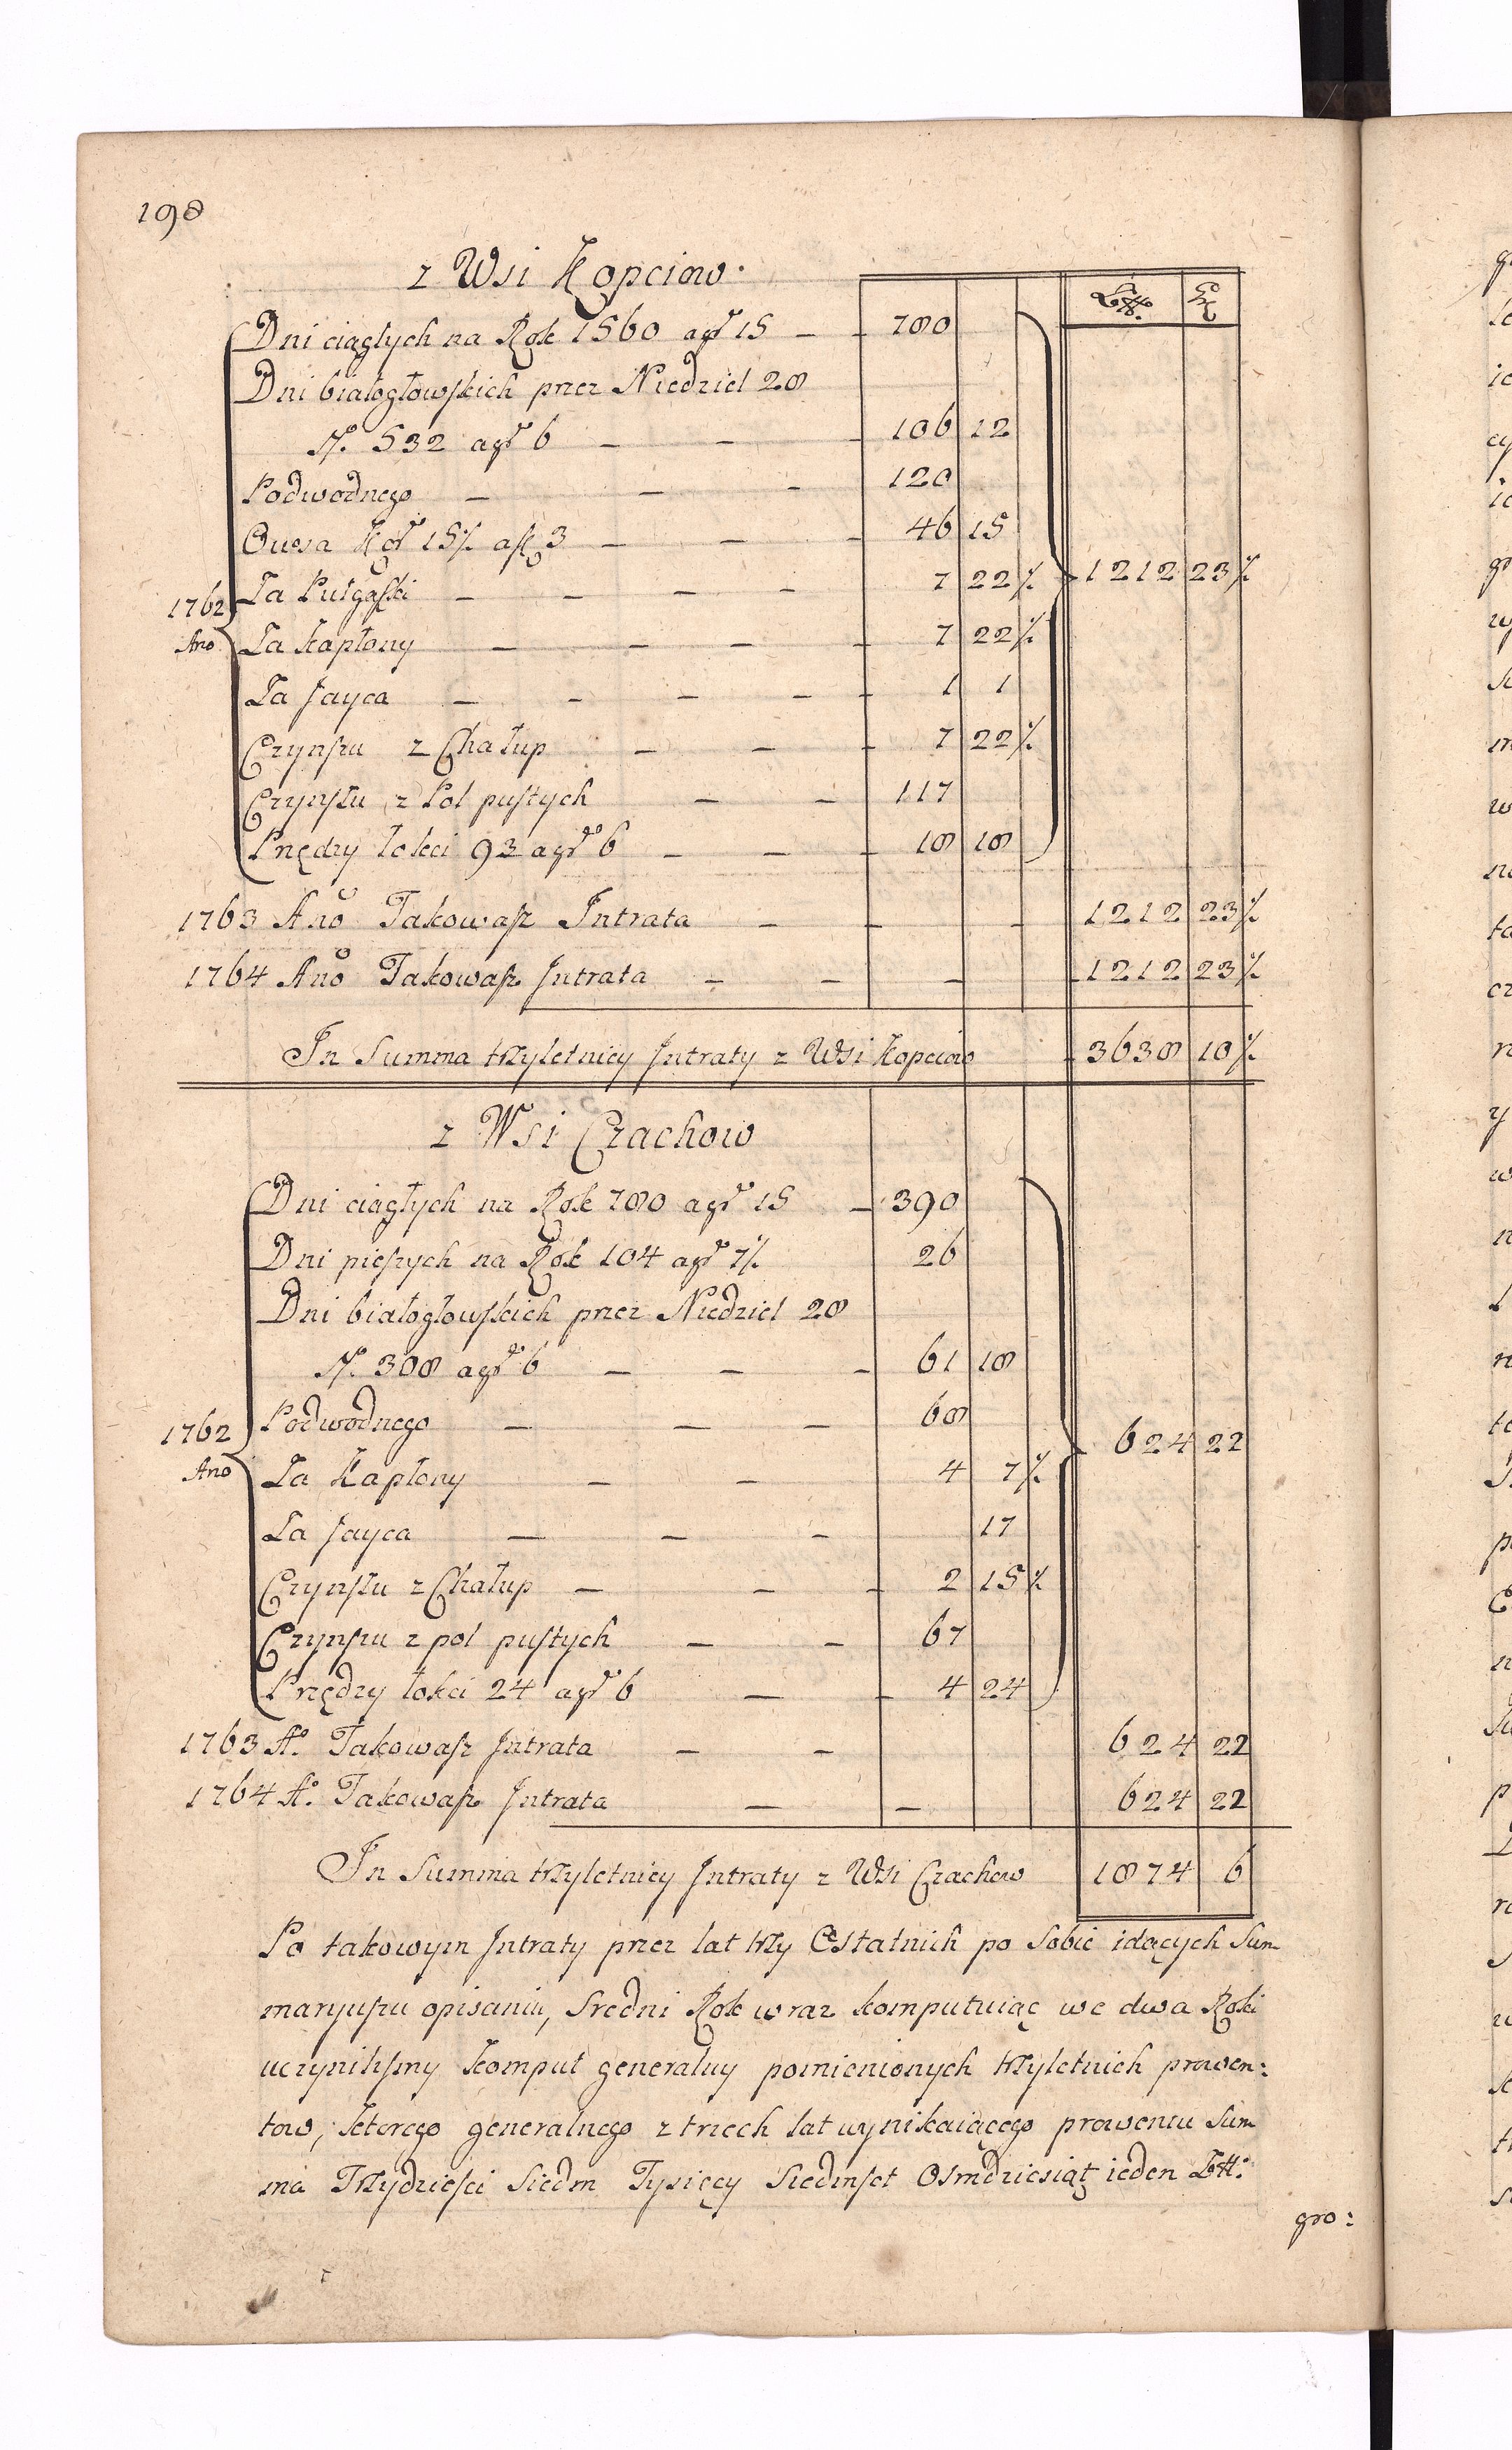 198
z Wsi Kopciow.
Złł: gr
Dni ciągłych na Rok 1560 a gr 15 — — 780
Dni białogłowskich przez Niedziel 28
No. 532 a gr 6 — — — 106 12
Podwodnego — — — 120
Owsa 15 ⁒ a 3 — — — 46 15
Za Pułgąski — — — — 7 22 ⁒ 1212 23 ⁒
1762
Ano
Za kapłony — — — — 7 22 ⁒
Za Jayca — — — — — 1 1
Czynszu z Chałup — — — 7 22 ⁒
Czynszu z Pol pustych — — 117
Przędzy łokci 93 a gr 6 — — — 18 18
1763 Ano Takowasz Intrata — — — 1212 23 ⁒
1764 Ano Takowasz Intrata — — — 1212 23 ⁒
In Summa trzyletniey Intraty z Wsi Kopciow 3638 10 ⁒
z Wsi Czachow
Dni ciągłych na Rok 780 a gr 15 — 390
Dni pieszych na Rok 104 a gr 7 ⁒ 26
Dni białogłowskich przez Niedziel 28
No. 308 a gr 6 — — — 61 18
Podwodnego — — — 68
1762
Ano
624 22
Za Kapłony — — 4 7 ⁒
Za Jayca — — — 17
Czynszu z Chałup — — — 2 15 ⁒
Czynszu z pol pustych — — 67
Przędzy łokci 24 a gr 6 — — 4 24
1763 Ao. Takowasz Intrata — — 624 22
1764 Ao. Takowasz Intrata — — 624 22
In Summa trzyletniey Intraty z Wsi Czachow 1874 6
Po takowym Intraty przez lat trzy Ostatnich po sobie idących Sum
maryuszu opisaniu, Sredni Rok wraz komputuiąc we dwa Roki
uczynilismy komput generalny pomienionych trzyletnich prowen:
tow, ktorego generalnego z trzech lat wynikaiącego prowentu Sum
ma Trzydziesci Siedm Tysięcy Siedmset Osmdziesiąt ieden Złł:
gro: